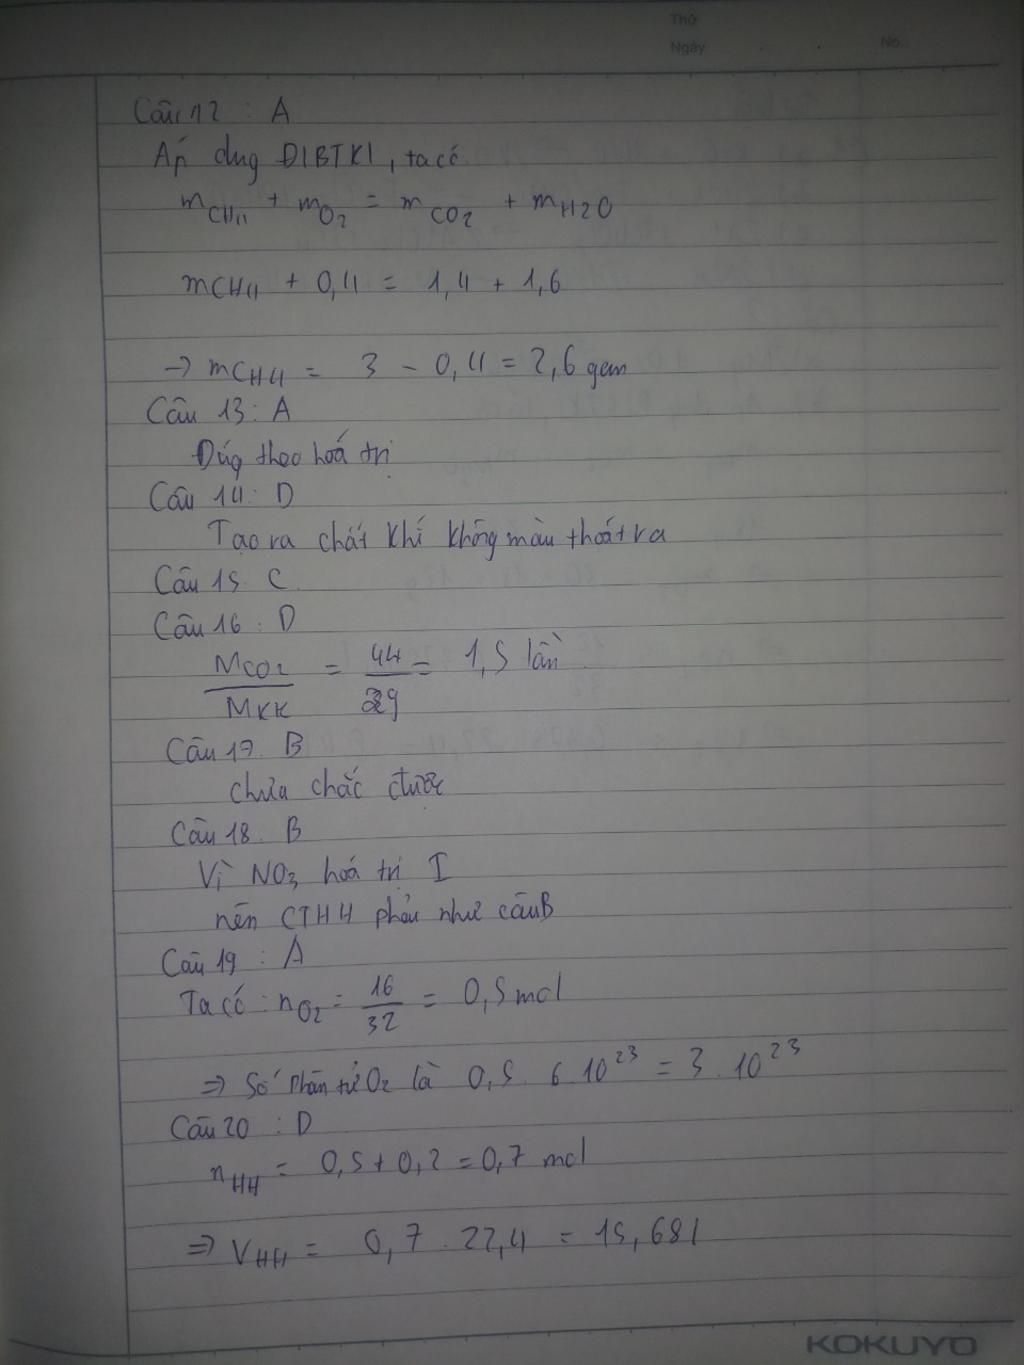 Thứ
Ngày . .
No.
Câu 12 : A
Áp dug ĐlBTKl, ta có
mCH4 + mO2 = mCO2 + mH2O
mCH4 + 0,4 = 1,4 + 1,6
→ mCH4 = 3 - 0,4 = 2,6 gam
Câu 13 : A
Đúg theo hoá trị
Câu 14 : D
Tạo ra chất khí không màu thoát ra
Câu 15. C
Câu 16 : D
MCO2 / MKK = 44 / 29 = 1,5 lần
Câu 17. B
chưa chắc được
Câu 18. B
Vì NO3 hoá trị I
nên CTHH phải như câu B
Câu 19 : A
Ta có : nO2 = 16 / 32 = 0,5 mol
⇒ Số phân tử O2 là 0,5 . 6.10^23 = 3.10^23
Câu 20 : D
nHH = 0,5 + 0,2 = 0,7 mol
⇒ VHH = 0,7 . 22,4 = 15,68 l
KOKUYO